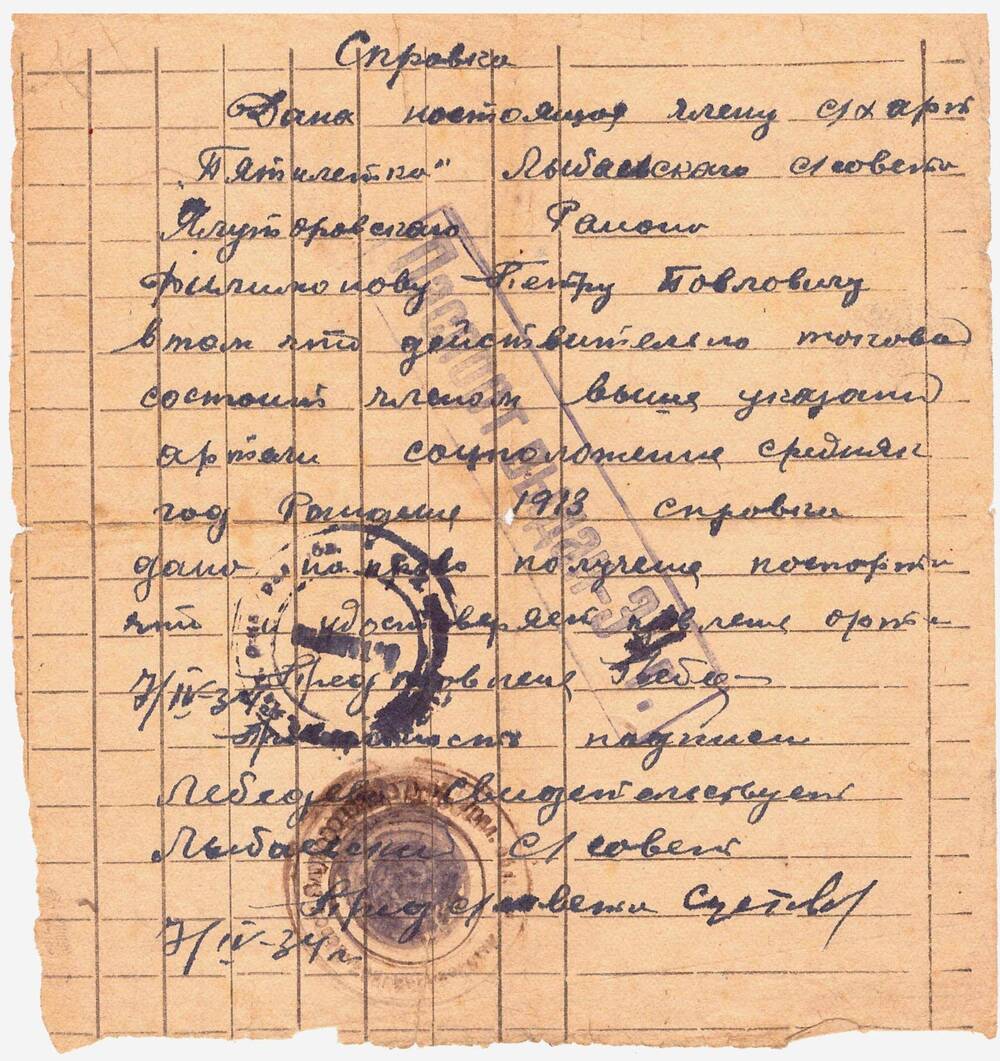 Справка
Дана настоящая члену с/х арт
"Пятилетка" Лыбаевскаго с/совета
Ялуторовскаго Раиона
Филимонову Петру Павловичу
в том что действительно токова
состоит членом выше указатй
артели соцположение средняк
год Рождение 1913 справка
дана на право получене поспорта
что и удостоверяет провлене арт
7/IV-34 Пред провлене
подписи
Лебедева Свидетельствует
Лыбаевский с/совет
Пред с/совета
7/IV-34 г.
Паспорт выдан-3